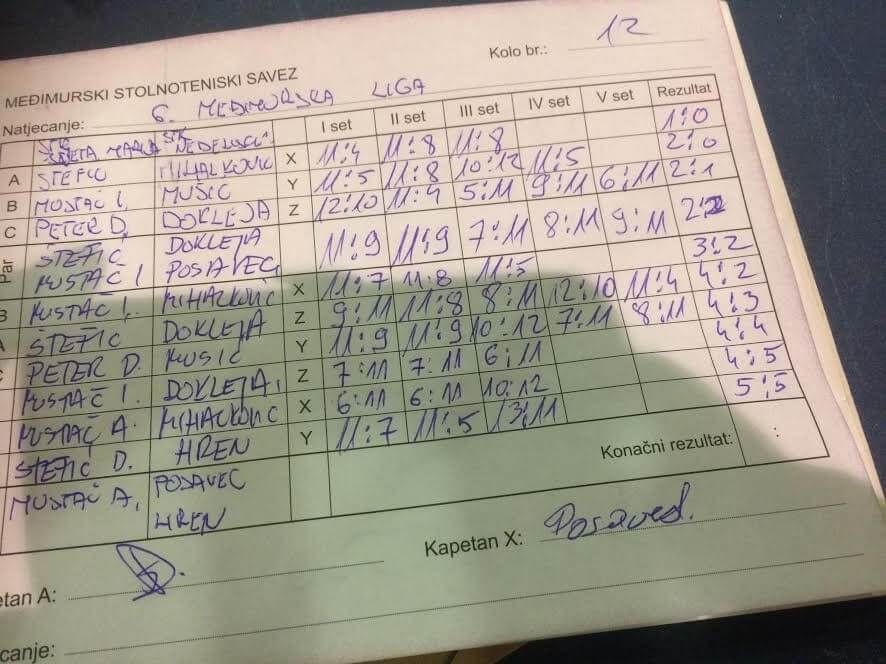 Kolo br.: 12
MEĐIMURSKI STOLNOTENISKI SAVEZ
Natjecanje: 6. MEĐIMURSKA LIGA
I set II set III set IV set V set Rezultat
STK STK
A STEFIĆ MIHALKOVIĆ X 11:4 11:8 11:8 1:0
B MUSTAČ I. MUŠIĆ Y 11:5 11:8 10:12 11:5 2:0
C PETER D. DOKLEJA Z 12:10 11:4 5:11 9:11 6:11 2:1
Par STEFIĆ DOKLEJA 11:9 11:9 7:11 8:11 9:11 2:2
MUSTAČ I POSAVEC,
B MUSTAČ I. MIHALKOVIĆ X 11:7 11:8 11:5 3:2
A STEFIĆ DOKLEJA Z 9:11 11:8 8:11 12:10 11:4 4:2
C PETER D. MUSIĆ Y 11:9 11:9 10:12 7:11 8:11 4:3
MUSTAČ I. DOKLEJA, Z 7:11 7:11 6:11 4:4
MUSTAČ A. MIHALKOVIĆ X 6:11 6:11 10:12 4:5
STEFIĆ D. HREN Y 11:7 11:5 13:11 5:5
MUSTAČ A, POSAVEC
HREN
Konačni rezultat: :
etan A: Kapetan X: Posavec
canje: